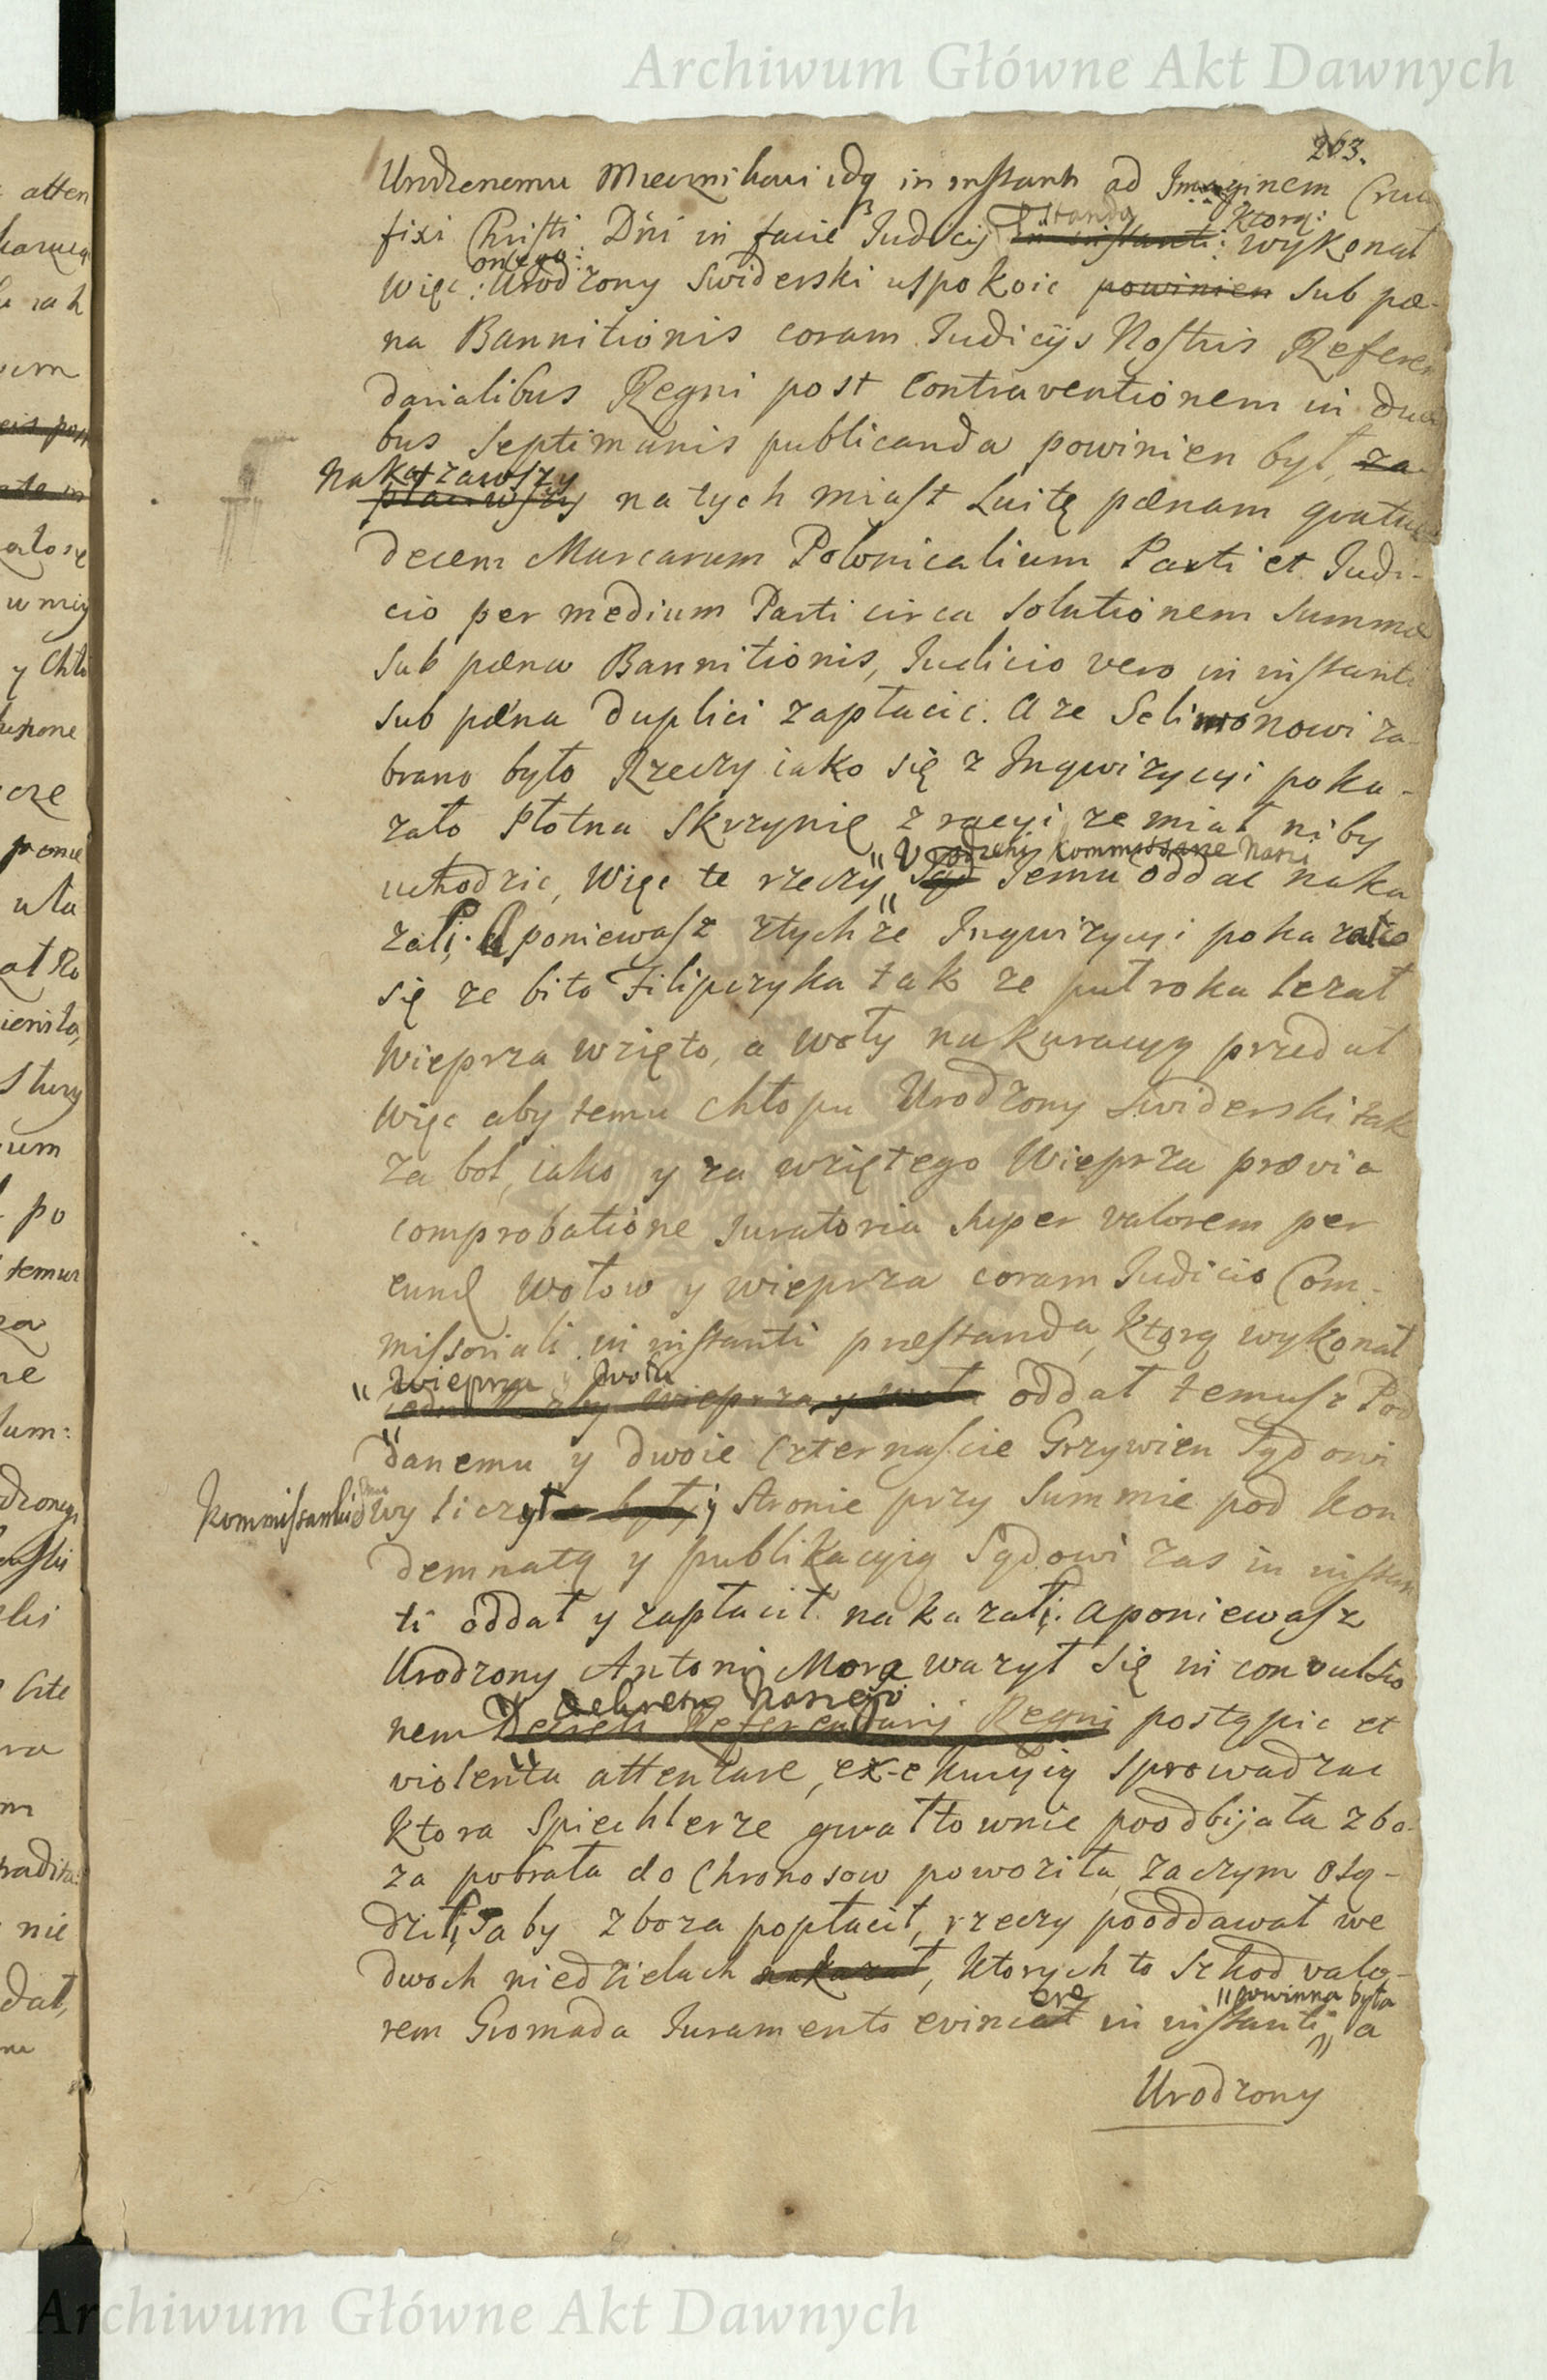 Archiwum Główne Akt Dawnych
263.
Urodzonemu Miecznikowi idą in instanti ad Imaginem Cruci
fixi Christi Dni in facie Judicij standą: ktorą: wykonał
onego:
Więc: Urodzony Swiderski uspokoic powinien sub pæ-
na Bannitionis coram Judicijs Nostris Referen
darialibus Regni post Contraventionem in dua
bus Septimanis publicanda powinien był, za-
Nakazawszy
płaciwszy na tych miast Luitę pænam quatuor
decem Marcarum Polonicalium Parti et Judi-
cio per medium Parti circa Solutionem Summæ
Sub pæna Bannitionis, Judicio vero in instanti
sub pæna duplici zapłacic. A ze Selimonowi za-
brano było Rzeczy iako się z Inqwizycyi poka-
zało Płotna Skrzynię z racyi ze miał niby
Urodzeni Kommissarze Nasi
uchodzic, Więc te rzeczy Sąd Jemu oddac naka
zali. A poniewasz ztychze Inqwizycyi pokazało
się ze bito Filipczyka tak ze puł roka lezał
Wieprza wzięto, a woły na kuracyą przedał
Więc aby temu chłopu Urodzony Swiderski tak
za bol, iako y za wziętego Wieprza prævia
comprobatione Juratoria super valorem per
eund Wołow y wieprza coram Judicio Com-
missoriali in instanti præstanda, ktorą wykonał
Wieprza y Woła
wieprza y woła oddał temusz Pod
danemu y dwoie Czternascie Grzywien Sądowi
Kommissarskiemu wyliczył był, y Stronie przy Summie pod Kon
demnatą y publikacyią Sądowi zas in instan
ti oddał y zapłacił nakazali. A poniewasz
Urodzony Antoni Mora wazył się in convulsio
Dekretu Naszego
nem Dekretu Referendarij Regni postąpic et
violenta attentare, ex-ekucyią sprowadzac
Ktora Spiechlerze gwałtownie poodbijała zbo-
za pobrała do Chronosow powoziła, zaczym osą-
dzili, aby zboza popłacił, rzeczy pooddawał we
dwoch niedzielach nakazał, ktorych to szkod valo-
ere powinna była
rem Gromada Juramento evincat in instanti a
Urodzony
Archiwum Główne Akt Dawnych